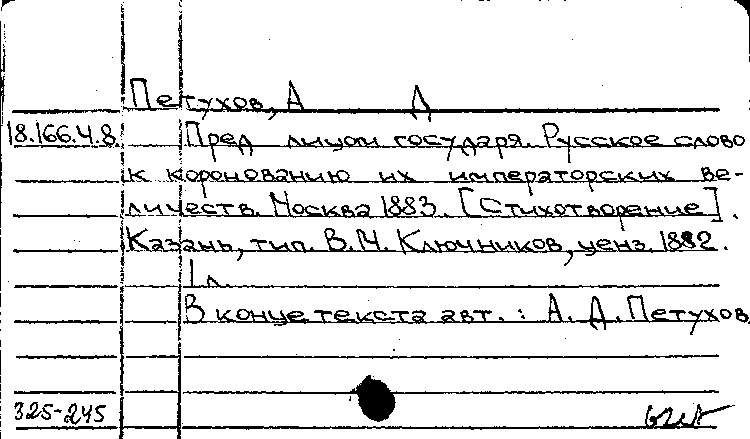 Петухов, А Д
18.166.4.8. Пред лицом государя. Русское слово
к коронованию их императорских ве-
личеств. Москва 1883. [Стихотворение].
Казань, тип. В.М. Ключников, ценз. 1882.
1 л.
В конце текста авт.: А. Д. Петухов
325-245